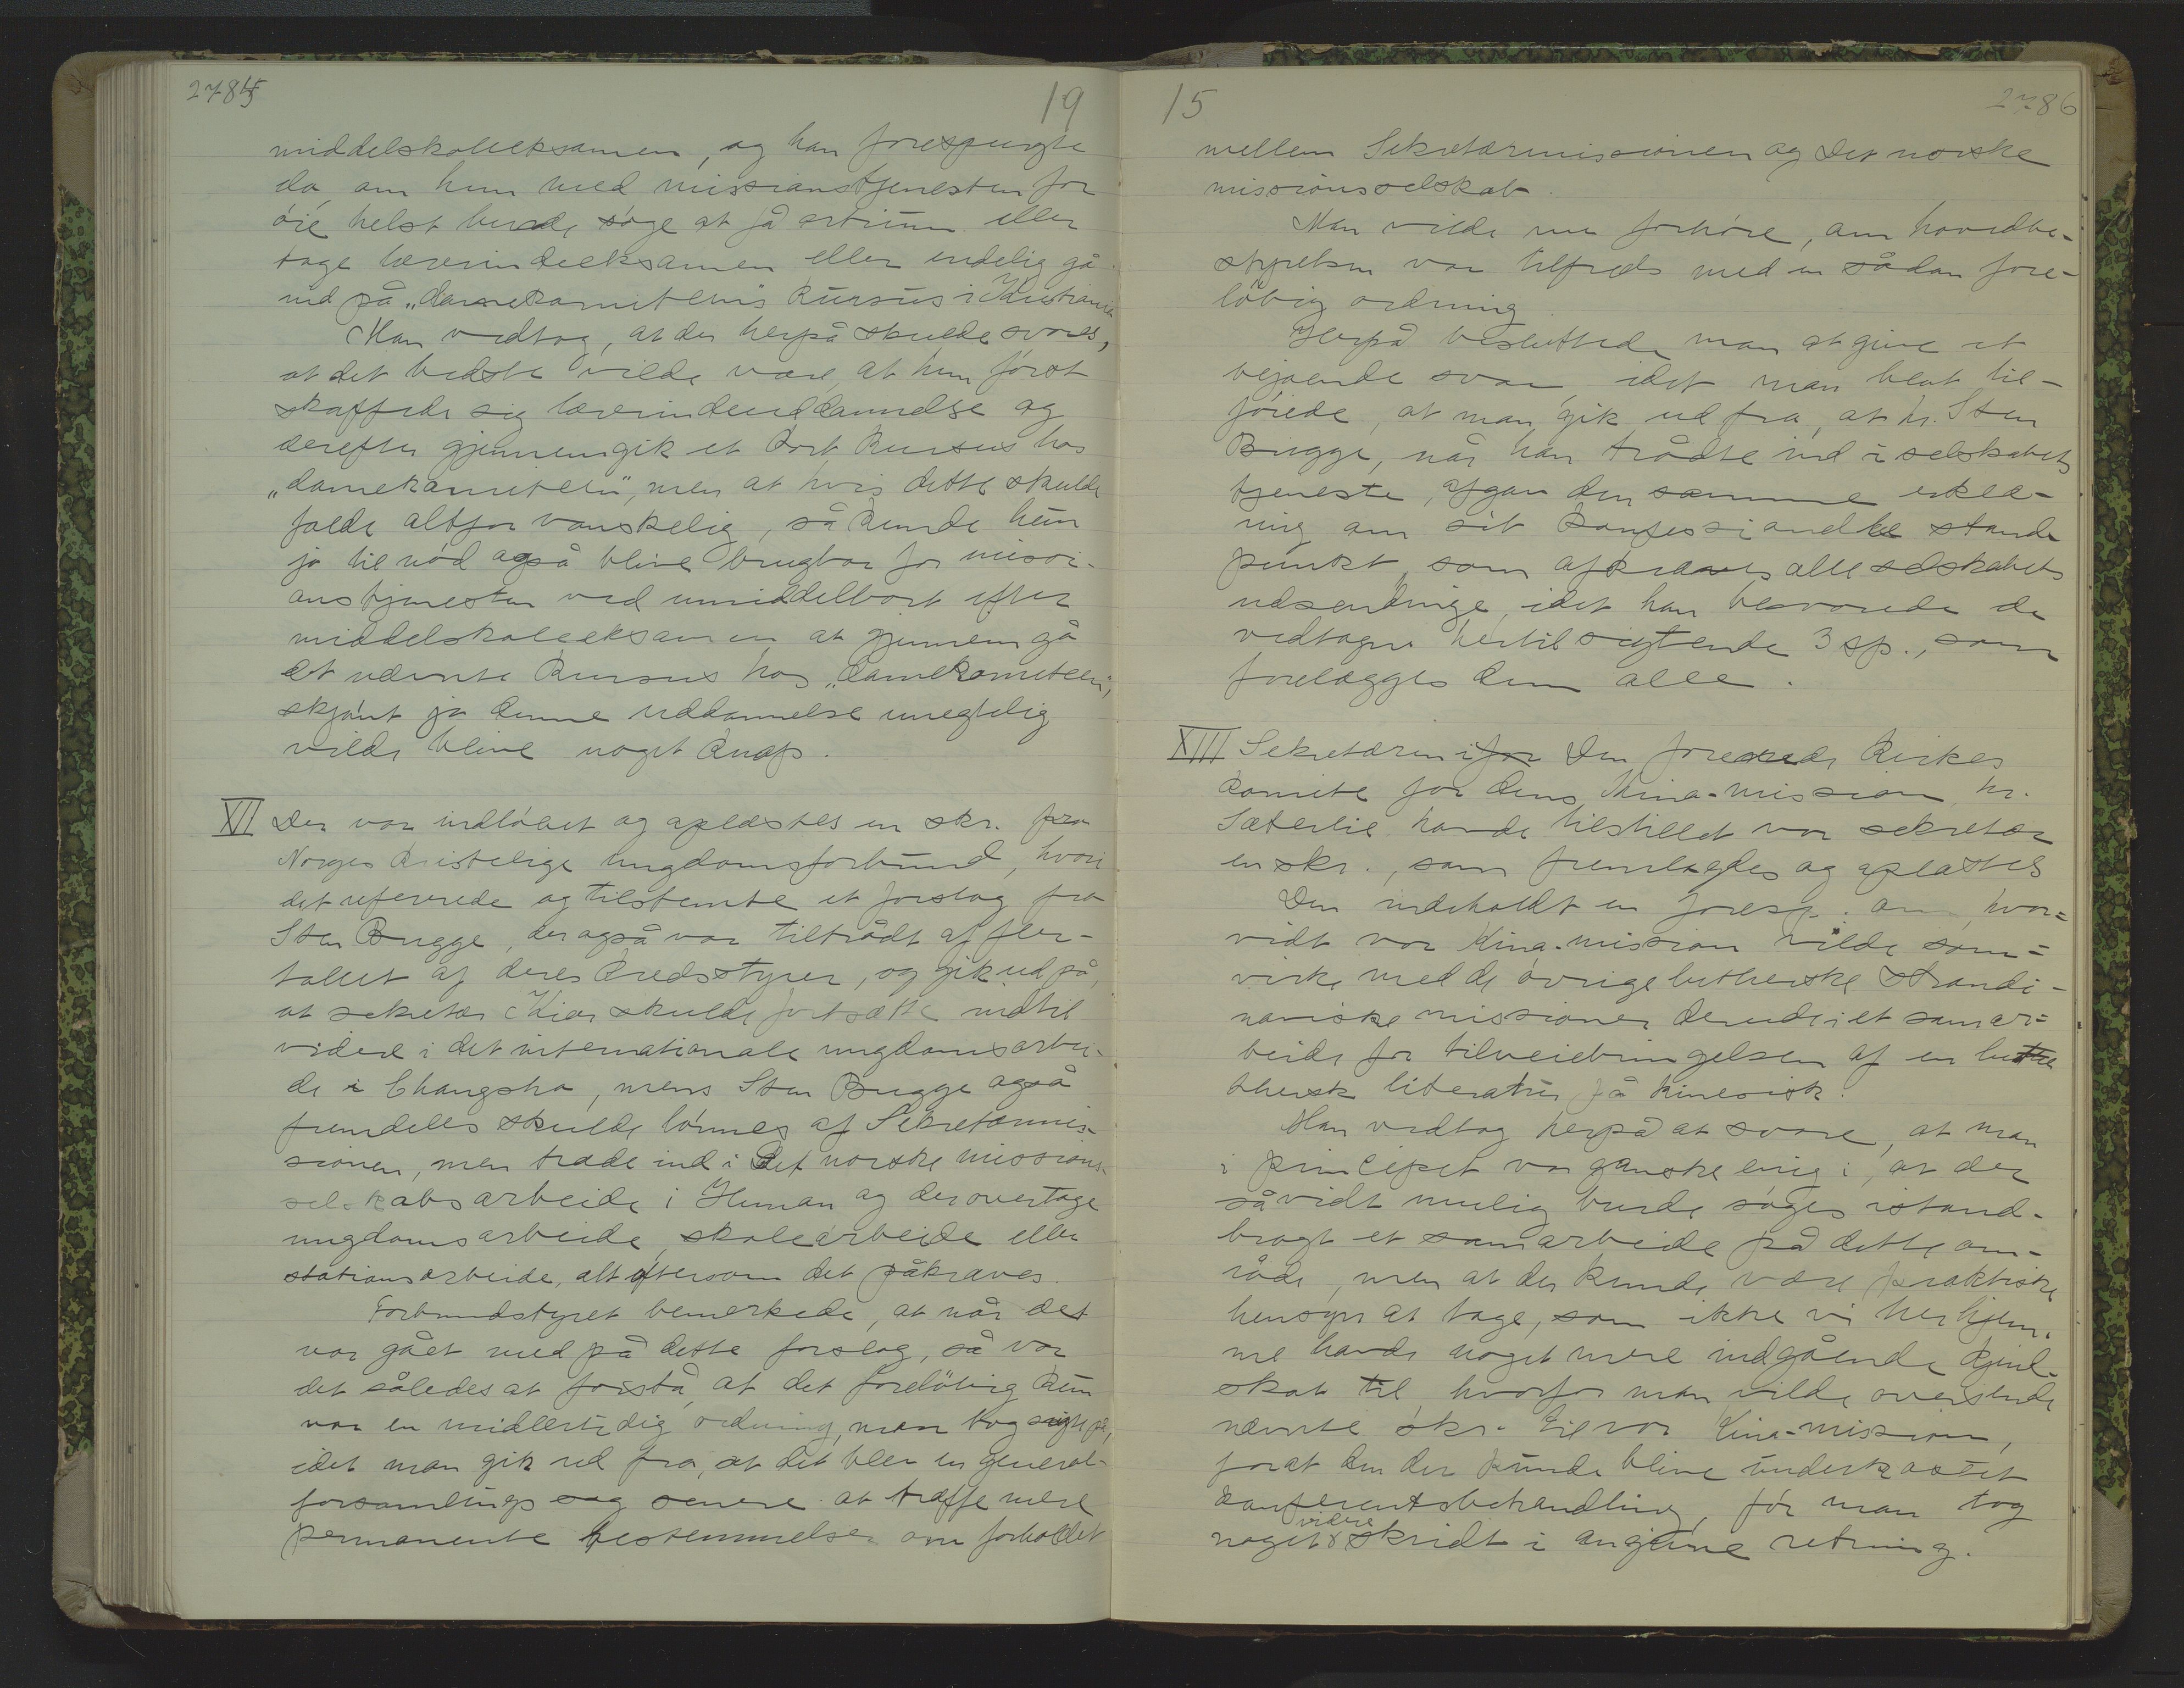 2785
19
middelskoleeksamen, og han forespurgte
da, om hun med missionstjenesten for
öie helst burde söge at få artium eller
tage lærerindeeksamen eller endelig gå
ind på „damekomiteens" kursus i Kristiania
Man vedtog, at der herpå skulde svares,
at det bedste vilde være, at hun först
skaffede sig lærerindeuddannelse og
derefter gjennemgik et kort kursus hos
„damekomiteen", men at hvis dette skulde
falde altfor vanskelig, så kunde hun
jo til nöd også blive brugbar for missi-
onstjenesten ved umiddelbart efter
middelskoleeksamen at gjennemgå
det nævnte kursus hos „damekomiteen",
skjönt jo denne uddannelse unegtelig
vilde blive noget knap.
XII Der var indlöbet og oplæstes en skr. fra
Norges kristelige ungdomsforbund, hvori
det refererede og tilstemte et forslag fra
Sten Bugge, der også var tiltrådt af fler-
tallet af deres kredsstyrer, og gik ud på,
at sekretær Kiær skulde fortsætte indtil
videre i det internationale ungdomsarbei-
de i Changsha, mens Sten Bugge også
fremdeles skulde lönnes af Sekretærmis-
sionen, men træde ind i Det norske missions-
selskabs arbeide i Hunan og der overtage
ungdomsarbeide, skolearbeide eller
stationsarbeide, alt eftersom det påkræves.
Forbundstyret bemerkede, at når det
var gået med på dette forslag, så var
det således at forstå, at det forelöbig kun
var en midlertidig ordning, man tog sigte på,
idet man gik ud fra, at det blev en general-
forsamlings sag senere at træffe mere
permanente bestemmelser om forholdet
15
2786
mellem Sekretærmissionen og Det norske
missionsselskab.
Man vilde nu forhöre, om hovedbe-
styrelsen var tilfreds med en sådan fore-
löbig ordning.
Herpå besluttede man at give et
bejaende svar, idet man blot til-
föiede, at man gik ud fra, at hr. Sten
Bugge, når han trådte ind i selskabets
tjeneste, afgav den samme erklæ-
ring om sit konfessionelle stand-
punkt, som afkræves alle selskabets
udsendinge, idet han besvarede de
vedtagne hertil sigtende 3 sp., som
forelægges dem alle.
XIII Sekretæren i for Den forenede kirkes
komite for dens Kina-mission, hr.
Sæterlie havde tilstillet vor sekretær
en skr., som fremlagdes og oplæstes
Den indeholdt en foresp. om, hvor=
vidt vor Kina-mission vilde sam=
virke med de övrige lutherske skandi-
naviske missioner derude i et samar=
beide for tilveiebringelsen af en lu
thersk literatur på kinesisk.
Man vedtog herpå at svare, at man
i principet var ganske enig i, at der
såvidt mulig burde söges istand-
bragt et samarbeide på dette om-
råde, men at der kunde være praktiske
hensyn at tage, som ikke vi her hjem-
me havde noget mere indgående kjend-
skab til, hvorfor man vilde oversende
nævnte skr. til vor Kina-mission,
forat den der kunde blive underkastet
konferentsbehandling, för man tog
noget videre skridt i angivne retning.